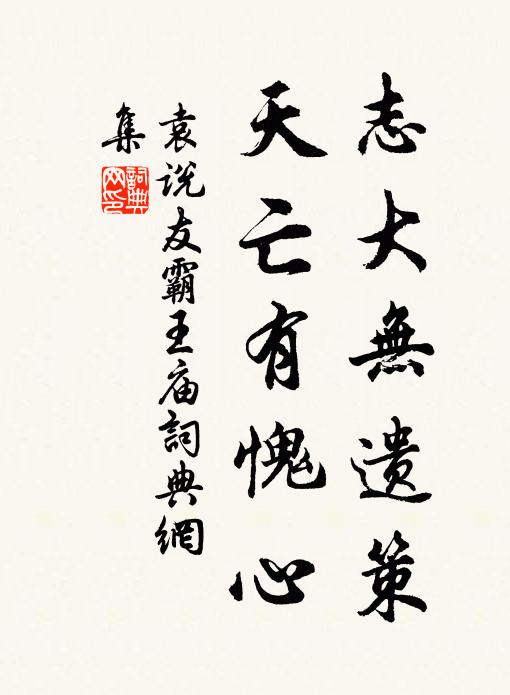 志大無遺策
天亡有愧心
袁说友霸王庙詞典網
集
詞典
网印